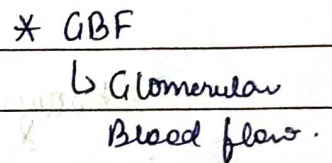 * GBF
↳ Glomerular
Blood flow.